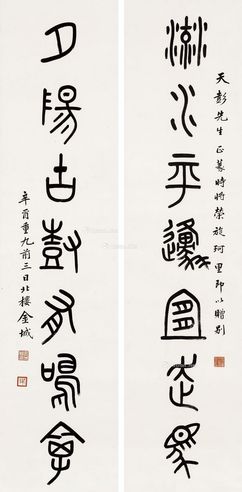 水平邍
天彭先生正篆時將榮旋珂里即以贈別
夕陽古尌有鳴禽
辛酉重九前三日北樓金城